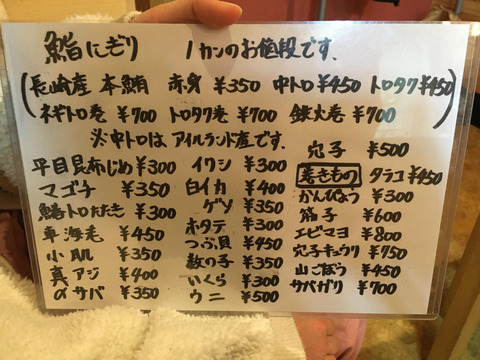 鮨にぎり 1カンのお値段です。
長崎産 本鮪 赤身 ¥350 中トロ ¥450 トロタク ¥450
ネギトロ巻 ¥700 トロタク巻 ¥700 鉄火巻 ¥700
※中トロはアイルランド産です。
平目昆布じめ ¥300
マゴチ ¥350
鮪トロたたき ¥300
車海老 ¥450
小肌 ¥350
真アジ ¥400
〆サバ ¥350
イワシ ¥300
白イカ ¥400
ゲソ ¥350
ホタテ ¥300
つぶ貝 ¥450
数の子 ¥350
いくら ¥300
ウニ ¥500
穴子 ¥500
巻きもの タラコ ¥450
かんぴょう ¥300
筋子 ¥600
エビマヨ ¥800
穴子キュウリ ¥750
山ごぼう ¥450
サバガリ ¥700